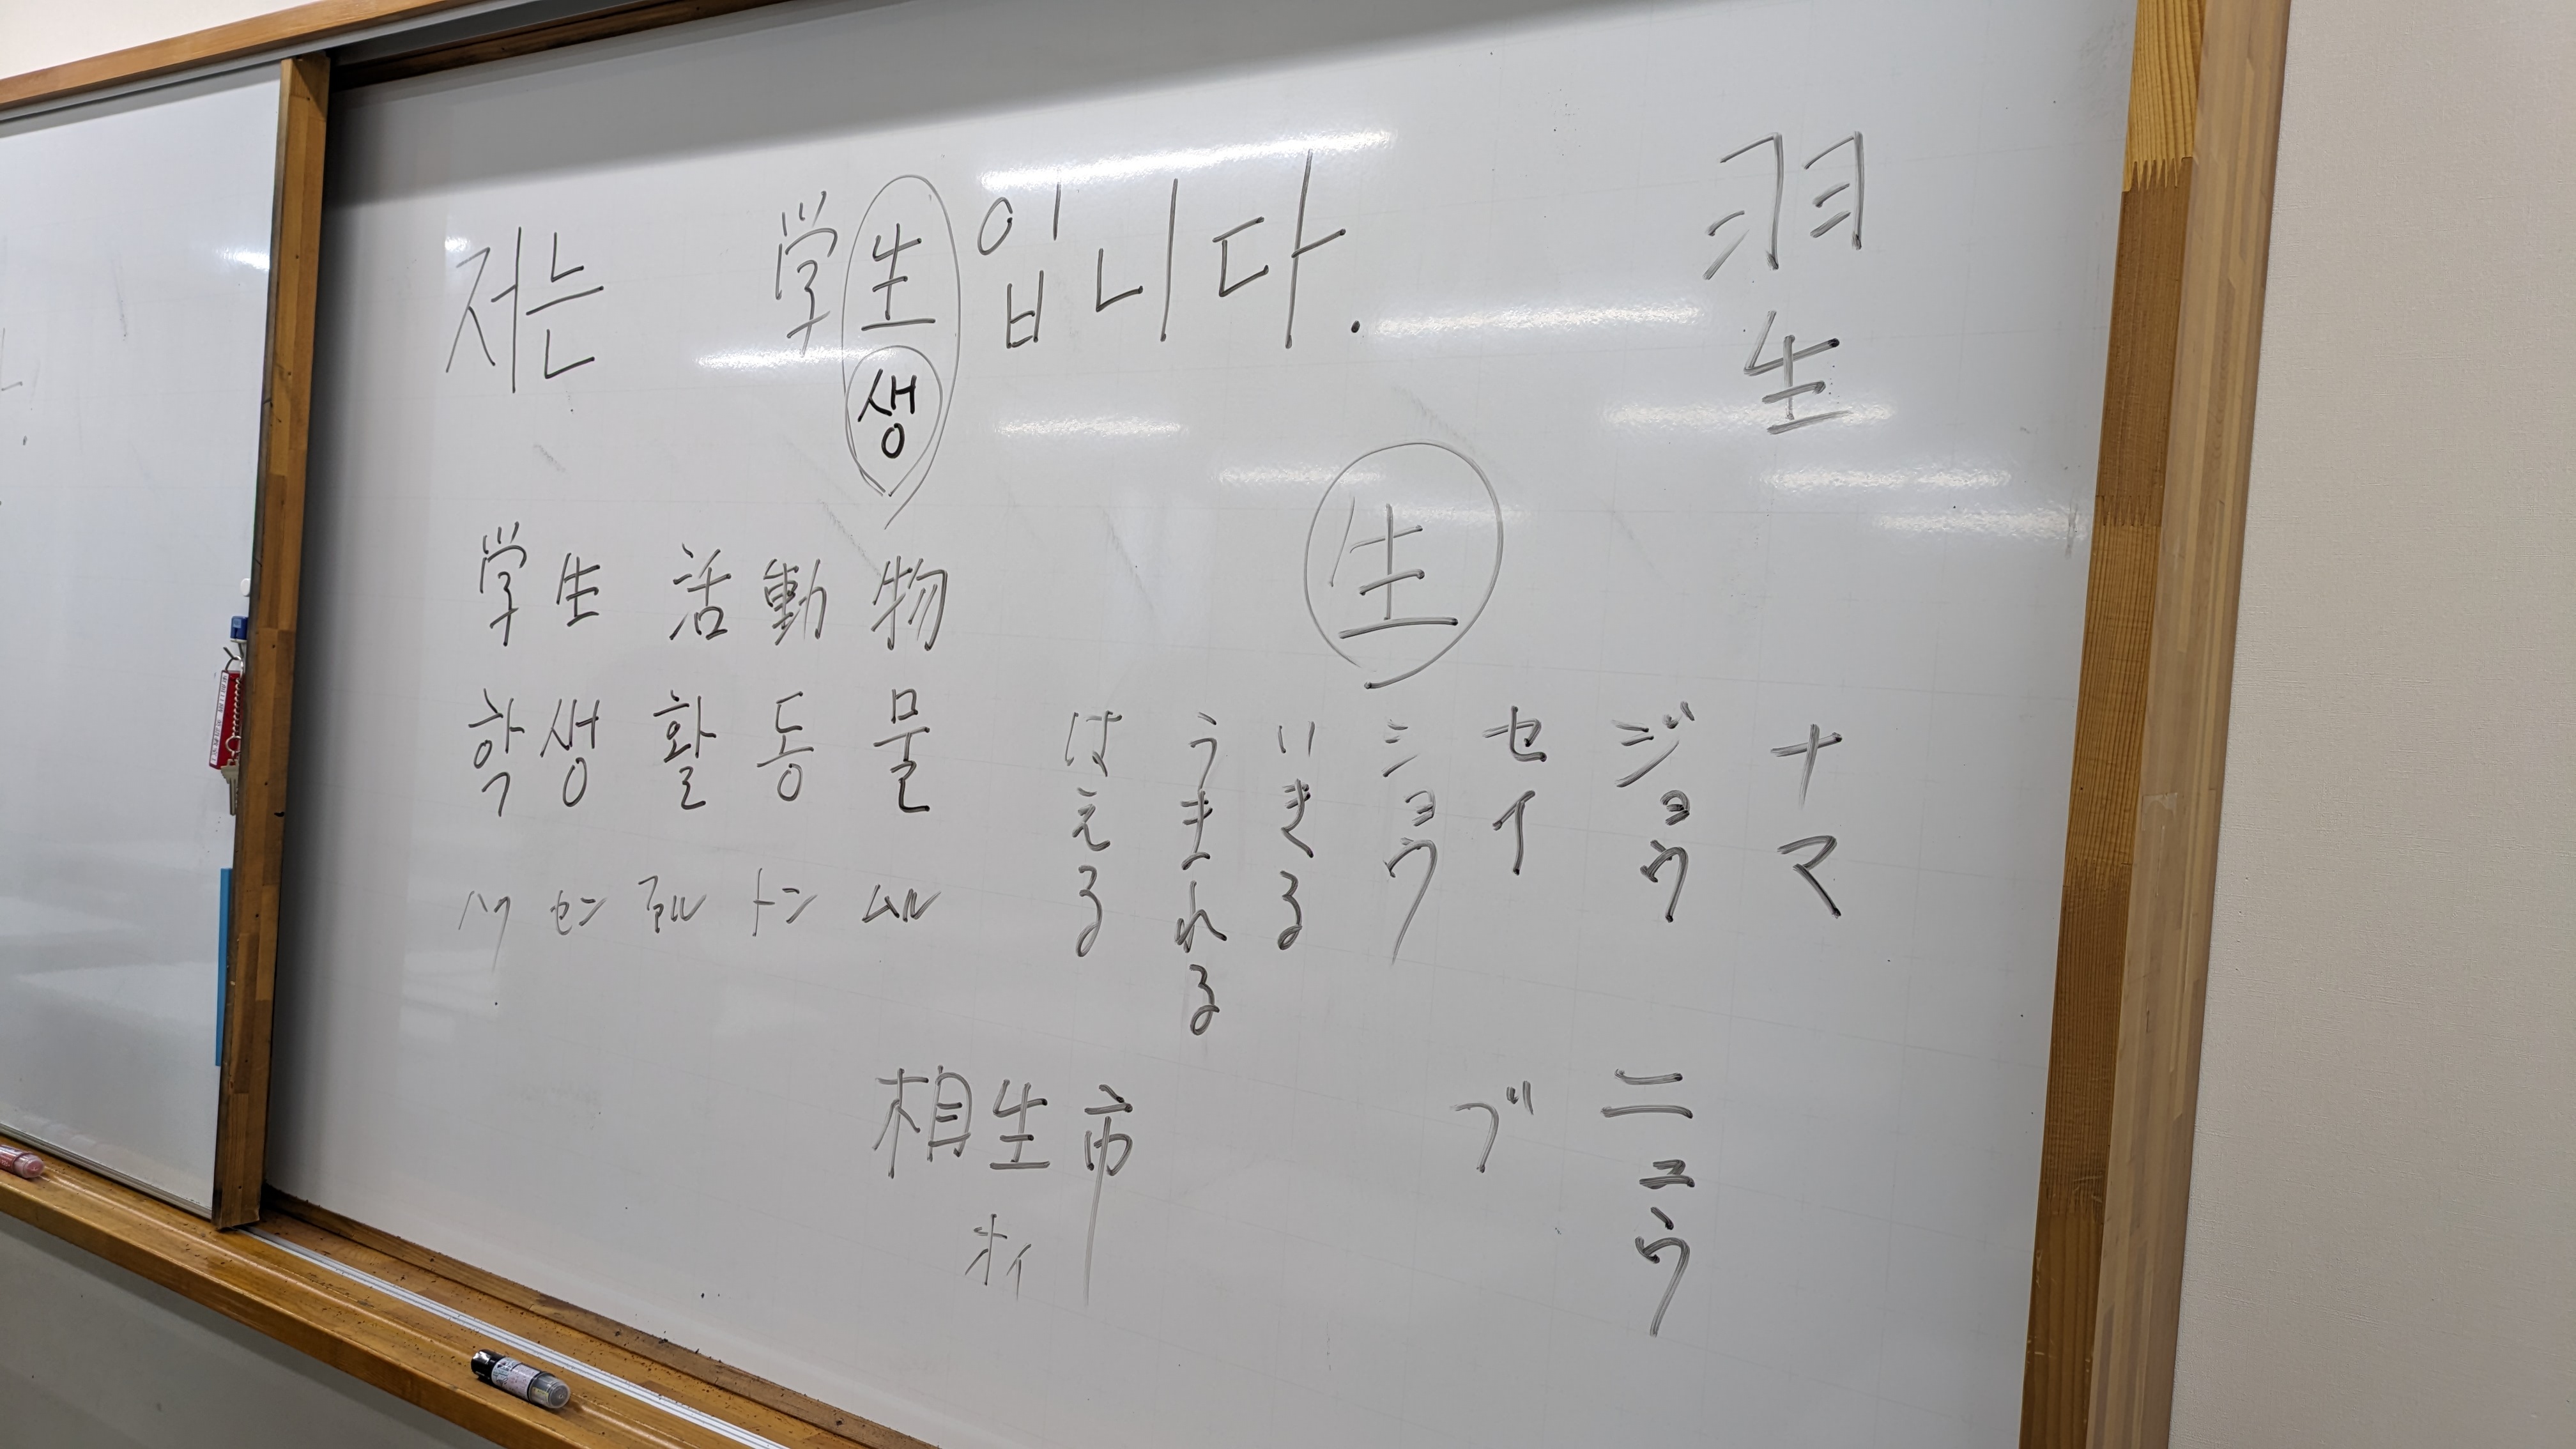 저는 学生입니다.
생
羽生
生
学生 活 動 物
학생 활 동 물
ハク セン ファル トン ムル
ナマ
ジョウ
セイ
ショウ
いきる
うまれる
はえる
ニュウ
ブ
相生市
オイ